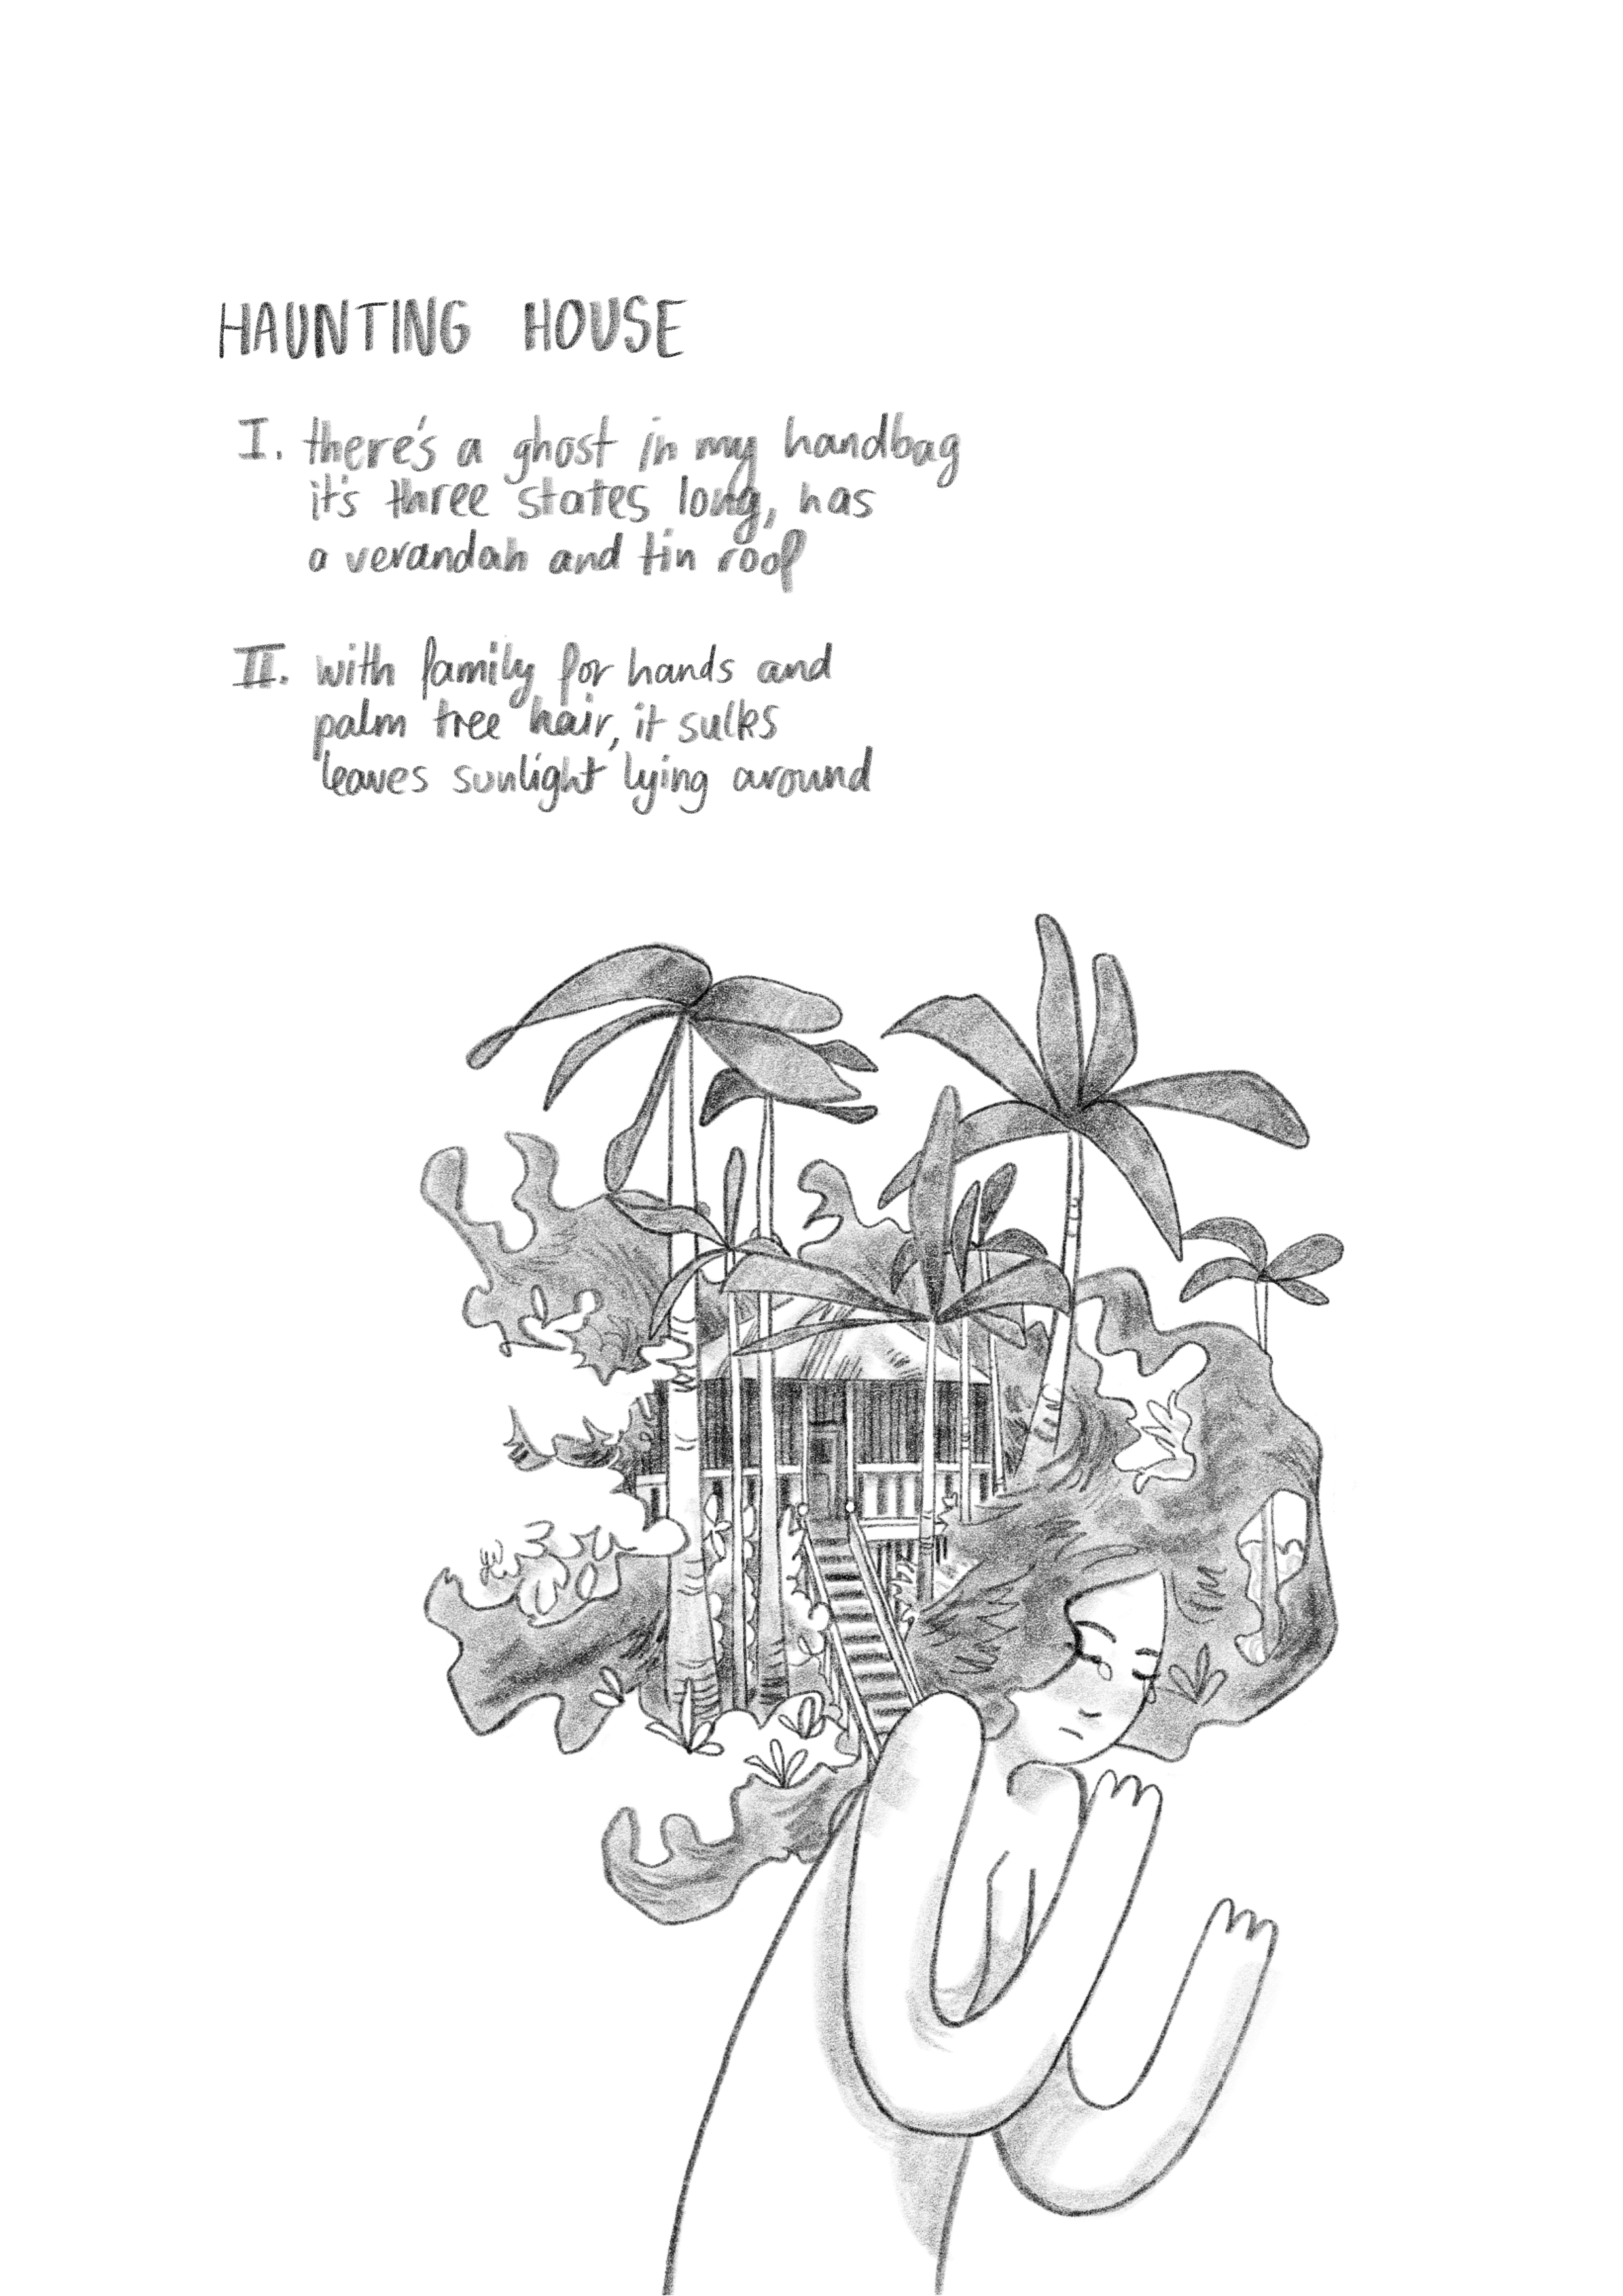 HAUNTING HOUSE
I. there's a ghost in my handbag
it's three states long, has
a verandah and tin roof
II. with family for hands and
palm tree hair, it sulks
leaves sunlight lying around